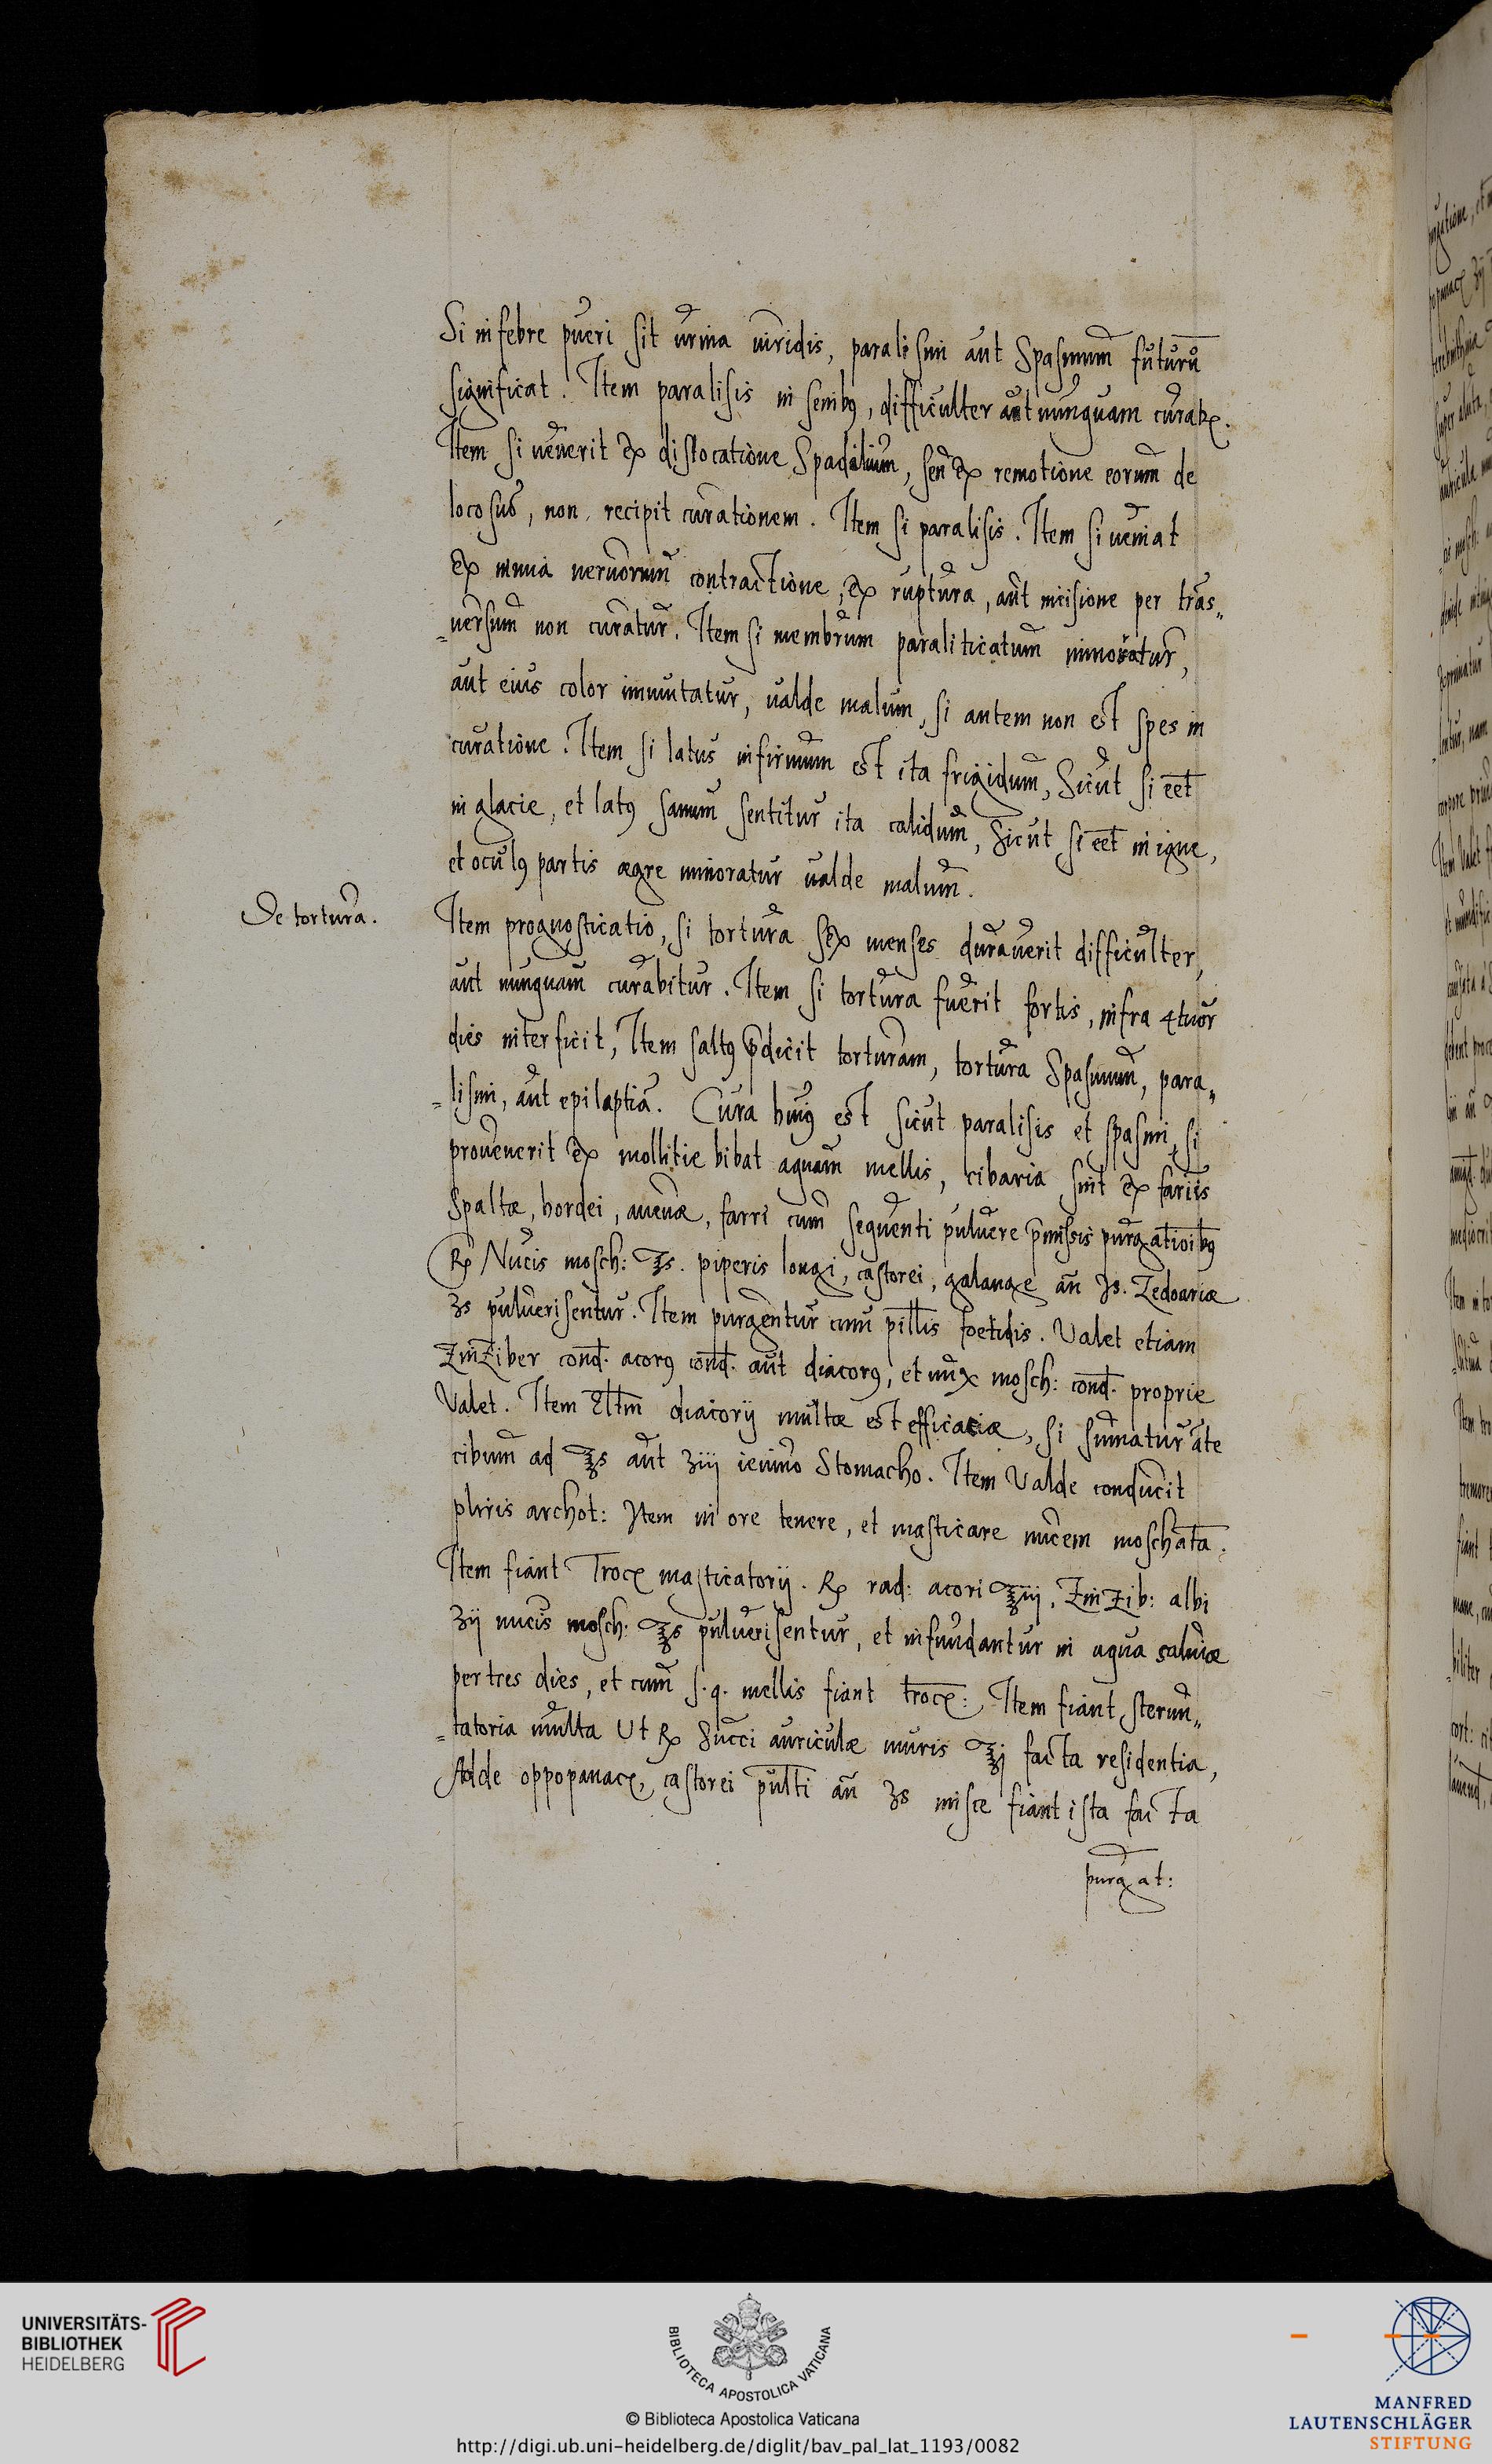 Si in febre pueri sit urina viridis, paralisim aut Spasmum futurū
significat. Item paralisis in senibꝰ, difficulter aut nunquam curabꝶ.
Item si uenerit ex dislocatione Spadilium, seu ex remotione eorum de
loco suo, non recipit curationem. Item si paralisis. Item si ueniat
ex nimia neruorum contractione, ex ruptura, aut incisione per tras„
„uersum non curatur. Item si membrum paraliticatum minoratur,
aut eius color immutatur, ualde malum, si autem non est spes in
curatione. Item si latus infirmum est ita frigidum, Sicut si eēt
in glacie, et latꝰ sanum sentitur ita calidum, Sicut si eēt in igne,
et oculꝰ partis aegre minoratur ualde malum.
De tortura.
Item prognosticatio, si tortura sex menses durauerit difficulter,
aut nunquam curabitur. Item si tortura fuerit fortis, infra 4tuor
dies interficit, Item saltꝰ p̄dicit torturam, tortura Spasmum, para„
„lisim, aut epilaptiā. Cura huiꝰ est sicut paralisis et spasmi, si
prouenerit ex mollitie bibat aquam mellis, cibaria sint ex fariis
Spaltæ, hordei, auenæ, farri cum sequenti puluere p̄missis purgatioībꝰ
℞ Nucis mosch: ℥s. piperis longi, castorei, galangæ añ ʒs. Zedoariæ
ʒs puluerisentur. Item purgentur cum pillīs foetidis. Valet etiam
Zinziber cond̄. acorꝰ cond̄. aut diacorꝰ, et nux mosch: cond̄. proprie
Valet. Item Eltm̄ diacorij multæ est efficaciæ, si sumatur āte
cibum ad ℥s aut ʒiij ieiuno Stomacho. Item Valde conducit
pliris archot: Item in ore tenere, et masticare nucem moschatā.
Item fiant Trocꝶ masticatorij. ℞ rad: acori ℥iij. Zinzib: albi
ʒij nucis mosch: ℥s puluerisentur, et infundantur in aqua saluiæ
per tres dies, et cum s.q. mellis fiant trocꝶ: Item fiant sternu„
„tatoria multa Ut ℞ Succi auriculæ muris ℥j facta residentia,
Adde oppopanacꝶ, castorei pultī añ ʒs misce fiant ista facta
purgat:
UNIVERSITÄTS-
BIBLIOTHEK
HEIDELBERG
BIBLIOTECA APOSTOLICA VATICANA
© Biblioteca Apostolica Vaticana
MANFRED
LAUTENSCHLÄGER
STIFTUNG
http://digi.ub.uni-heidelberg.de/diglit/bav_pal_lat_1193/0082